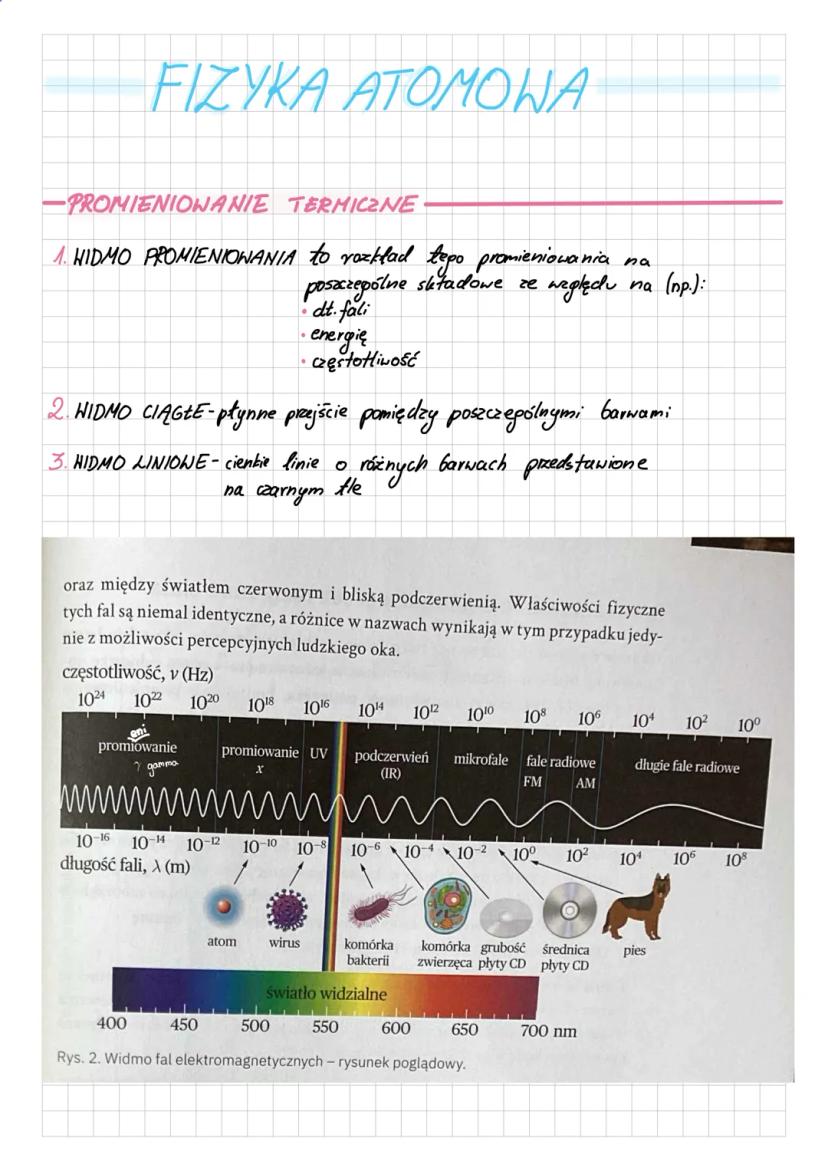 FIZYKA ATOMOWA
PROMIENIOWANIE TERMICZNE
1. WIDMO PROMIENIOWANIA to rozkład tego promieniowania na
poszczególne składowe ze względu na (np.):
• dł. fali
• energię
• częstotliwość
2. WIDMO CIĄGŁE - płynne przejście pomiędzy poszczególnymi barwami
3. WIDMO LINIOWE - cienkie linie o różnych barwach przedstawione
na czarnym tle
oraz między światłem czerwonym i bliską podczerwienią. Właściwości fizyczne
tych fal są niemal identyczne, a różnice w nazwach wynikają w tym przypadku jedy-
nie z możliwości percepcyjnych ludzkiego oka.
częstotliwość, ν (Hz)
10²⁴ 10²² 10²⁰ 10¹⁸ 10¹⁶ 10¹⁴ 10¹² 10¹⁰ 10⁸ 10⁶ 10⁴ 10² 10⁰
eni
promiowanie promiowanie UV podczerwień mikrofale fale radiowe długie fale radiowe
γ gamma x (IR) FM AM
10⁻¹⁶ 10⁻¹⁴ 10⁻¹² 10⁻¹⁰ 10⁻⁸ 10⁻⁶ 10⁻⁴ 10⁻² 10⁰ 10² 10⁴ 10⁶ 10⁸
długość fali, λ (m)
atom wirus komórka komórka grubość średnica pies
bakterii zwierzęca płyty CD płyty CD
światło widzialne
400 450 500 550 600 650 700 nm
Rys. 2. Widmo fal elektromagnetycznych – rysunek poglądowy.